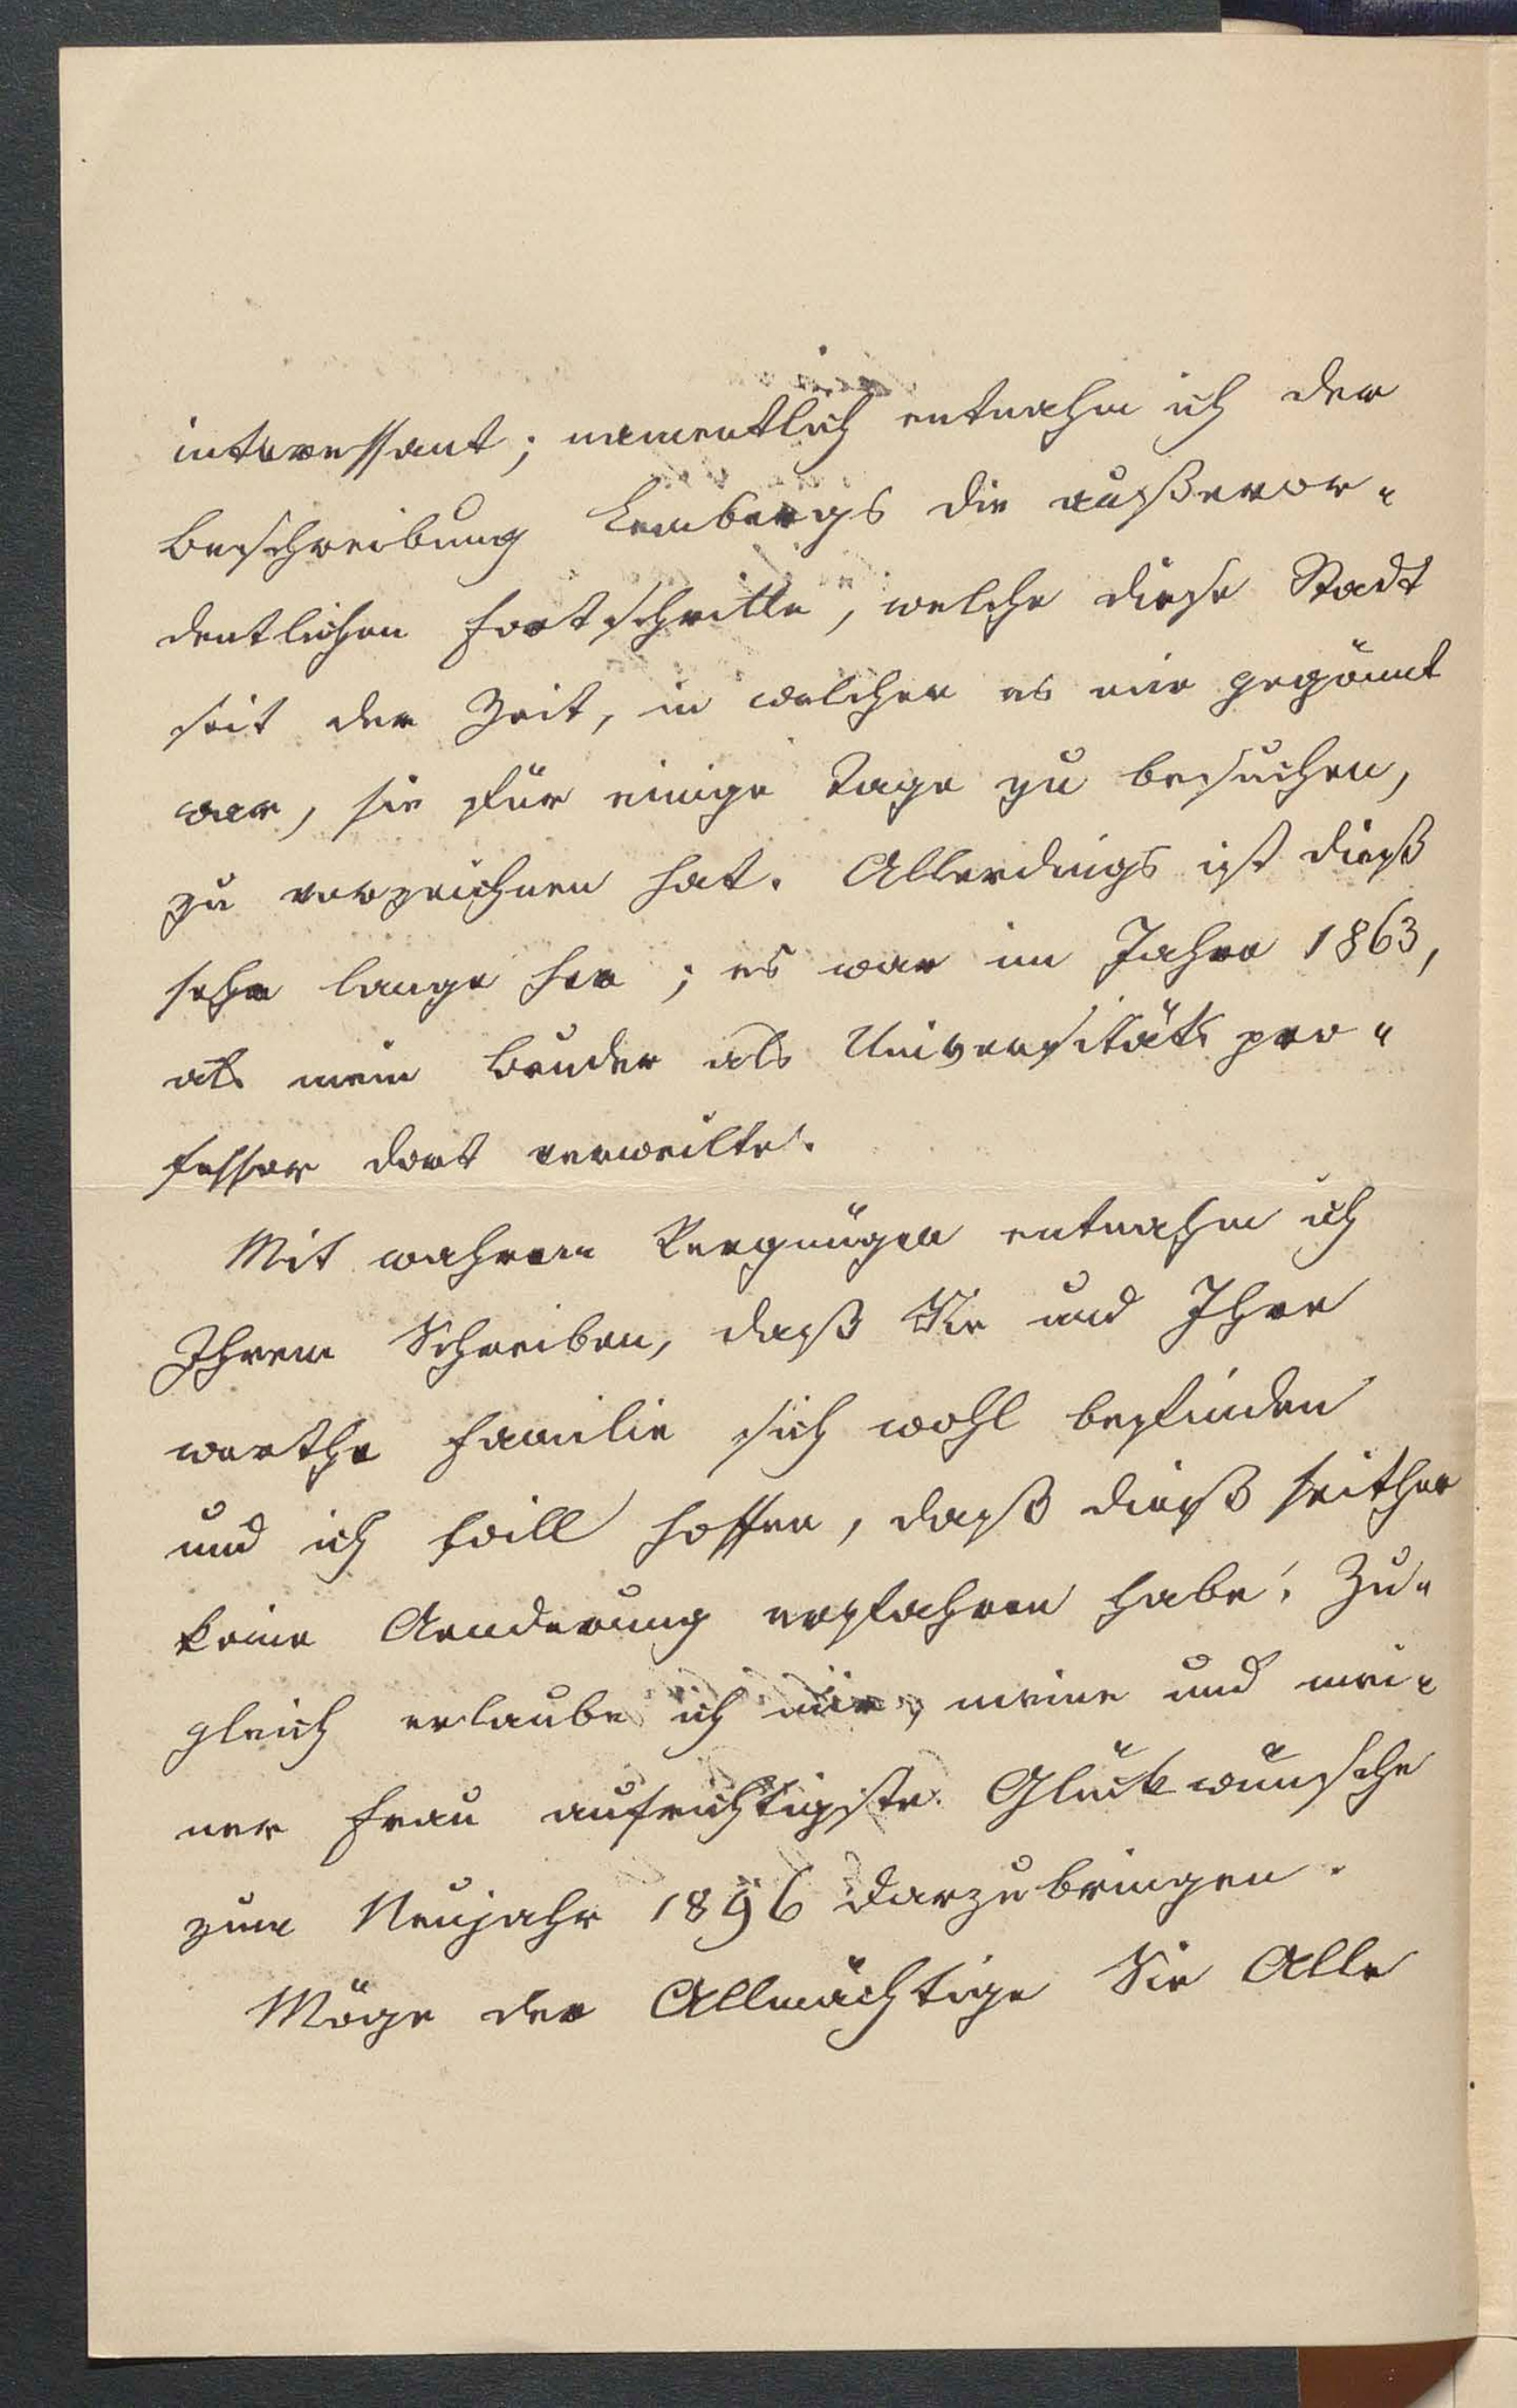 interessant; namentlich entnahm ich der
Beschreibung Lembergs die außeror-
dentlichen Fortschritte, welche diese Stadt
seit der Zeit, in welcher es mir gegönnt
war, sie für einige Tage zu besuchen,
zu verzeichnen hat. Allerdings ist dieß
sehr lange her; es war im Jahre 1863,
als mein Bruder als Universitäts pro-
fessor dort verweilte.
Mit wahrem Vergnügen entnahm ich
Ihrem Schreiben, daß Sie und Ihre
werthe Familie sich wohl befinden
und ich will hoffen, daß dieß seither
keine Aenderung erfahren habe. Zu-
gleich erlaube ich mir, meine und mei-
ner Frau aufrichtigste Glückwünsche
zum Neujahr 1896 darzubringen.
Möge der Allmächtige Sie Alle